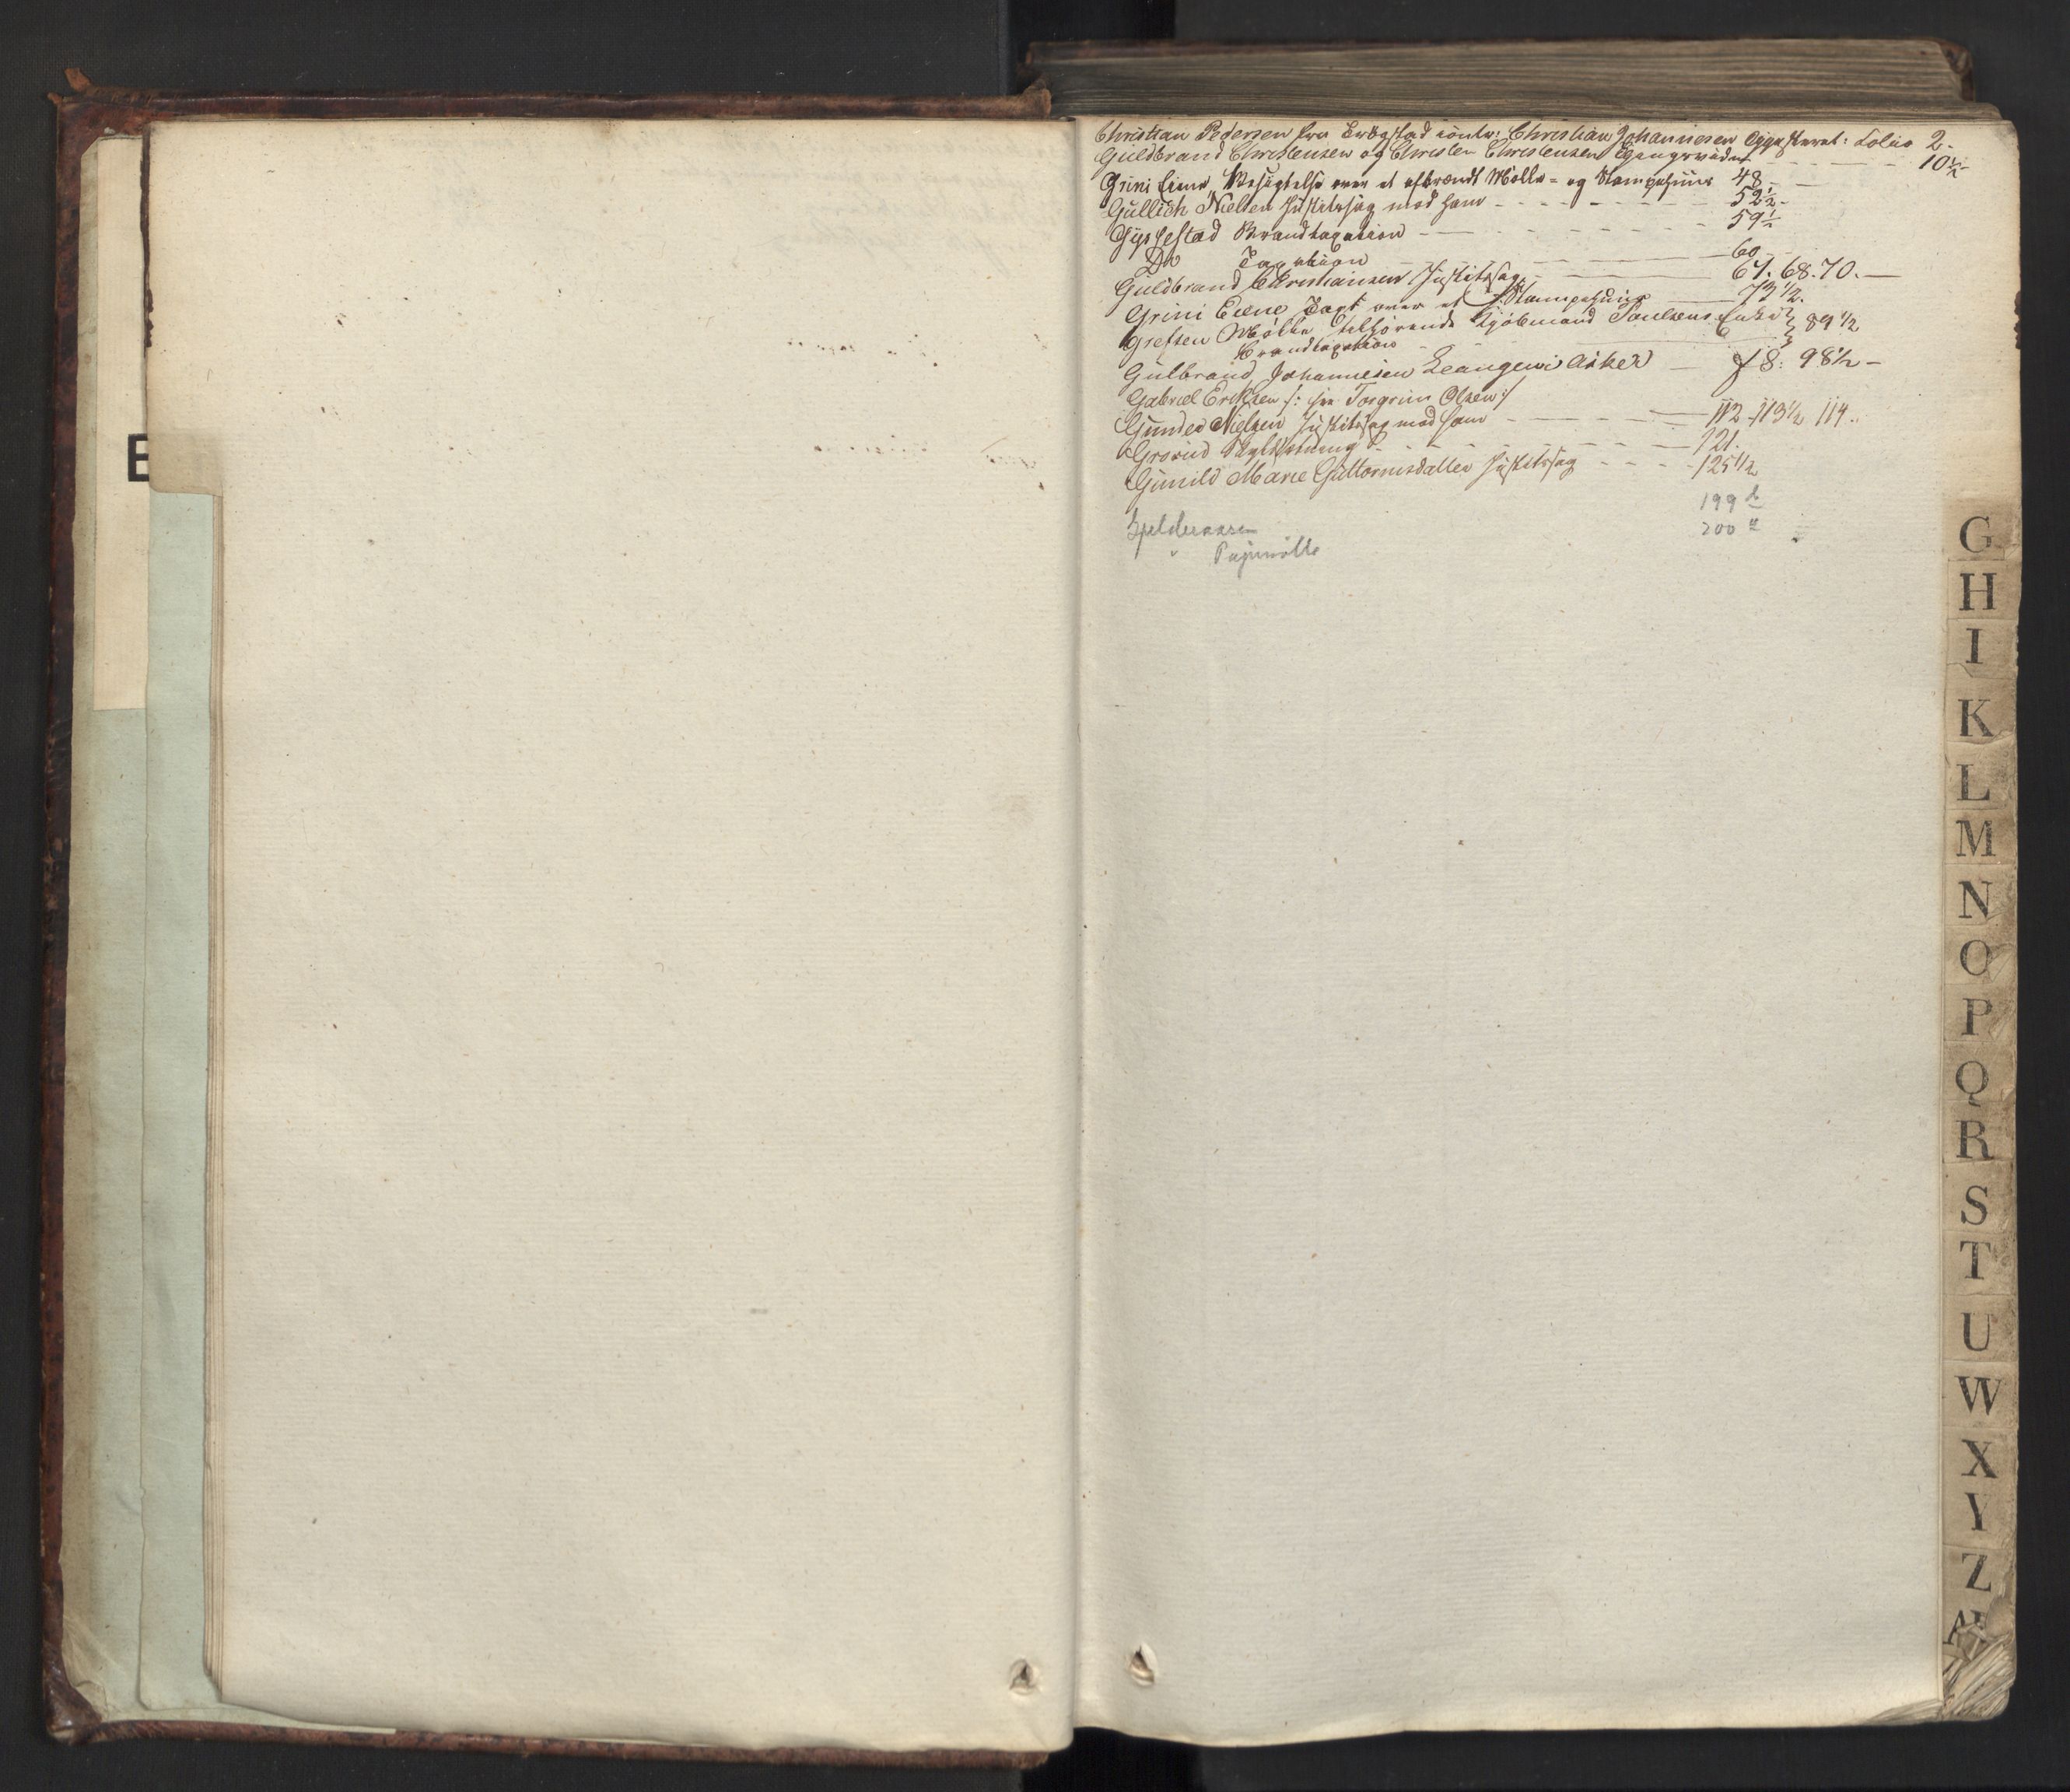 Christian Pedersen fra Trøgstad contr: Christian Johannesen Folio 2.
Guldbrand Christensen og Christen Christensen 10 1/2
Grini Eiene Besigtelse over et afbrændt Mølle- og Stampehuus 48
Gullich Nielsen Justitssag mod ham 52 1/2
Gjettestad Brandtaxation 59 1/2
Do Taxation 60
Guldbrand Christiansen Justitssag 67. 68. 70.
Grini Eiene Taxt over et Stampehuus 73 1/2.
Grefsen Mølle tilhørende Kjøbmand Poulsens Enke 89 1/2
Brandtaxation
Gulbrand Johannesen Leangen i Asker 98 1/2
Gabriel Eriksen /: see Torgrim Olsen :/
Gunder Nielsen Justitssag mod ham 112 113 1/2 114.
Grorud 121.
Gunild Marie Guttormsdatter Justitssag 125 1/2
199 b
Gjelleraasen 200 a
" Papirmølle
E
G
H
I
K
L
M
N
O
P
Q
R
S
T
U
W
X
Y
Z
Æ